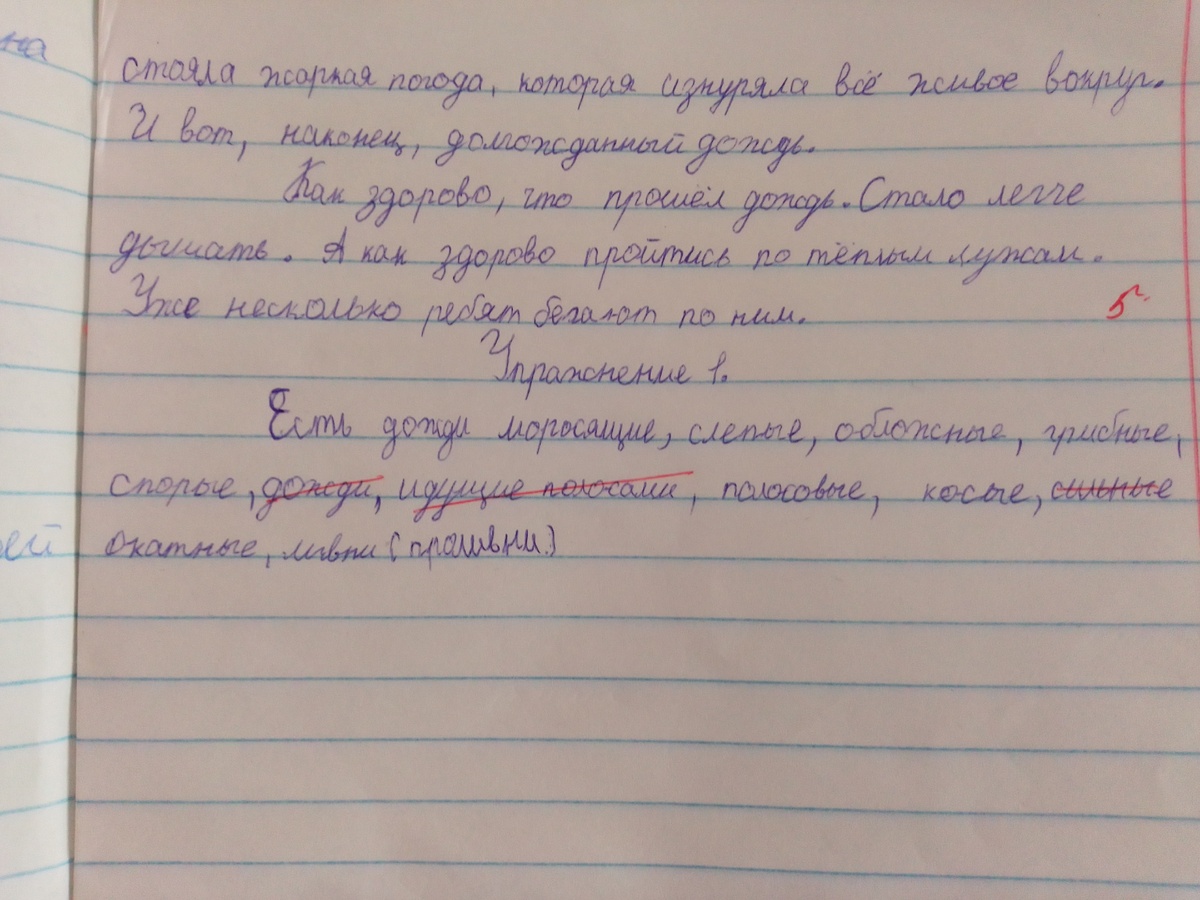 на
стояла жаркая погода, которая изнуряла всё живое вокруг.
И вот, наконец, долгожданный дождь.
Как здорово, что прошёл дождь. Стало легче
дышать. А как здорово пройтись по тёплым лужам.
Уже несколько ребят бегают по ним.
5
Упражнение 1.
Есть дожди моросящие, слепые, обложные, грибные,
спорые, дожди, идущие полосами, полосовые, косые, сильные
ей окатные, ливни (проливни.)